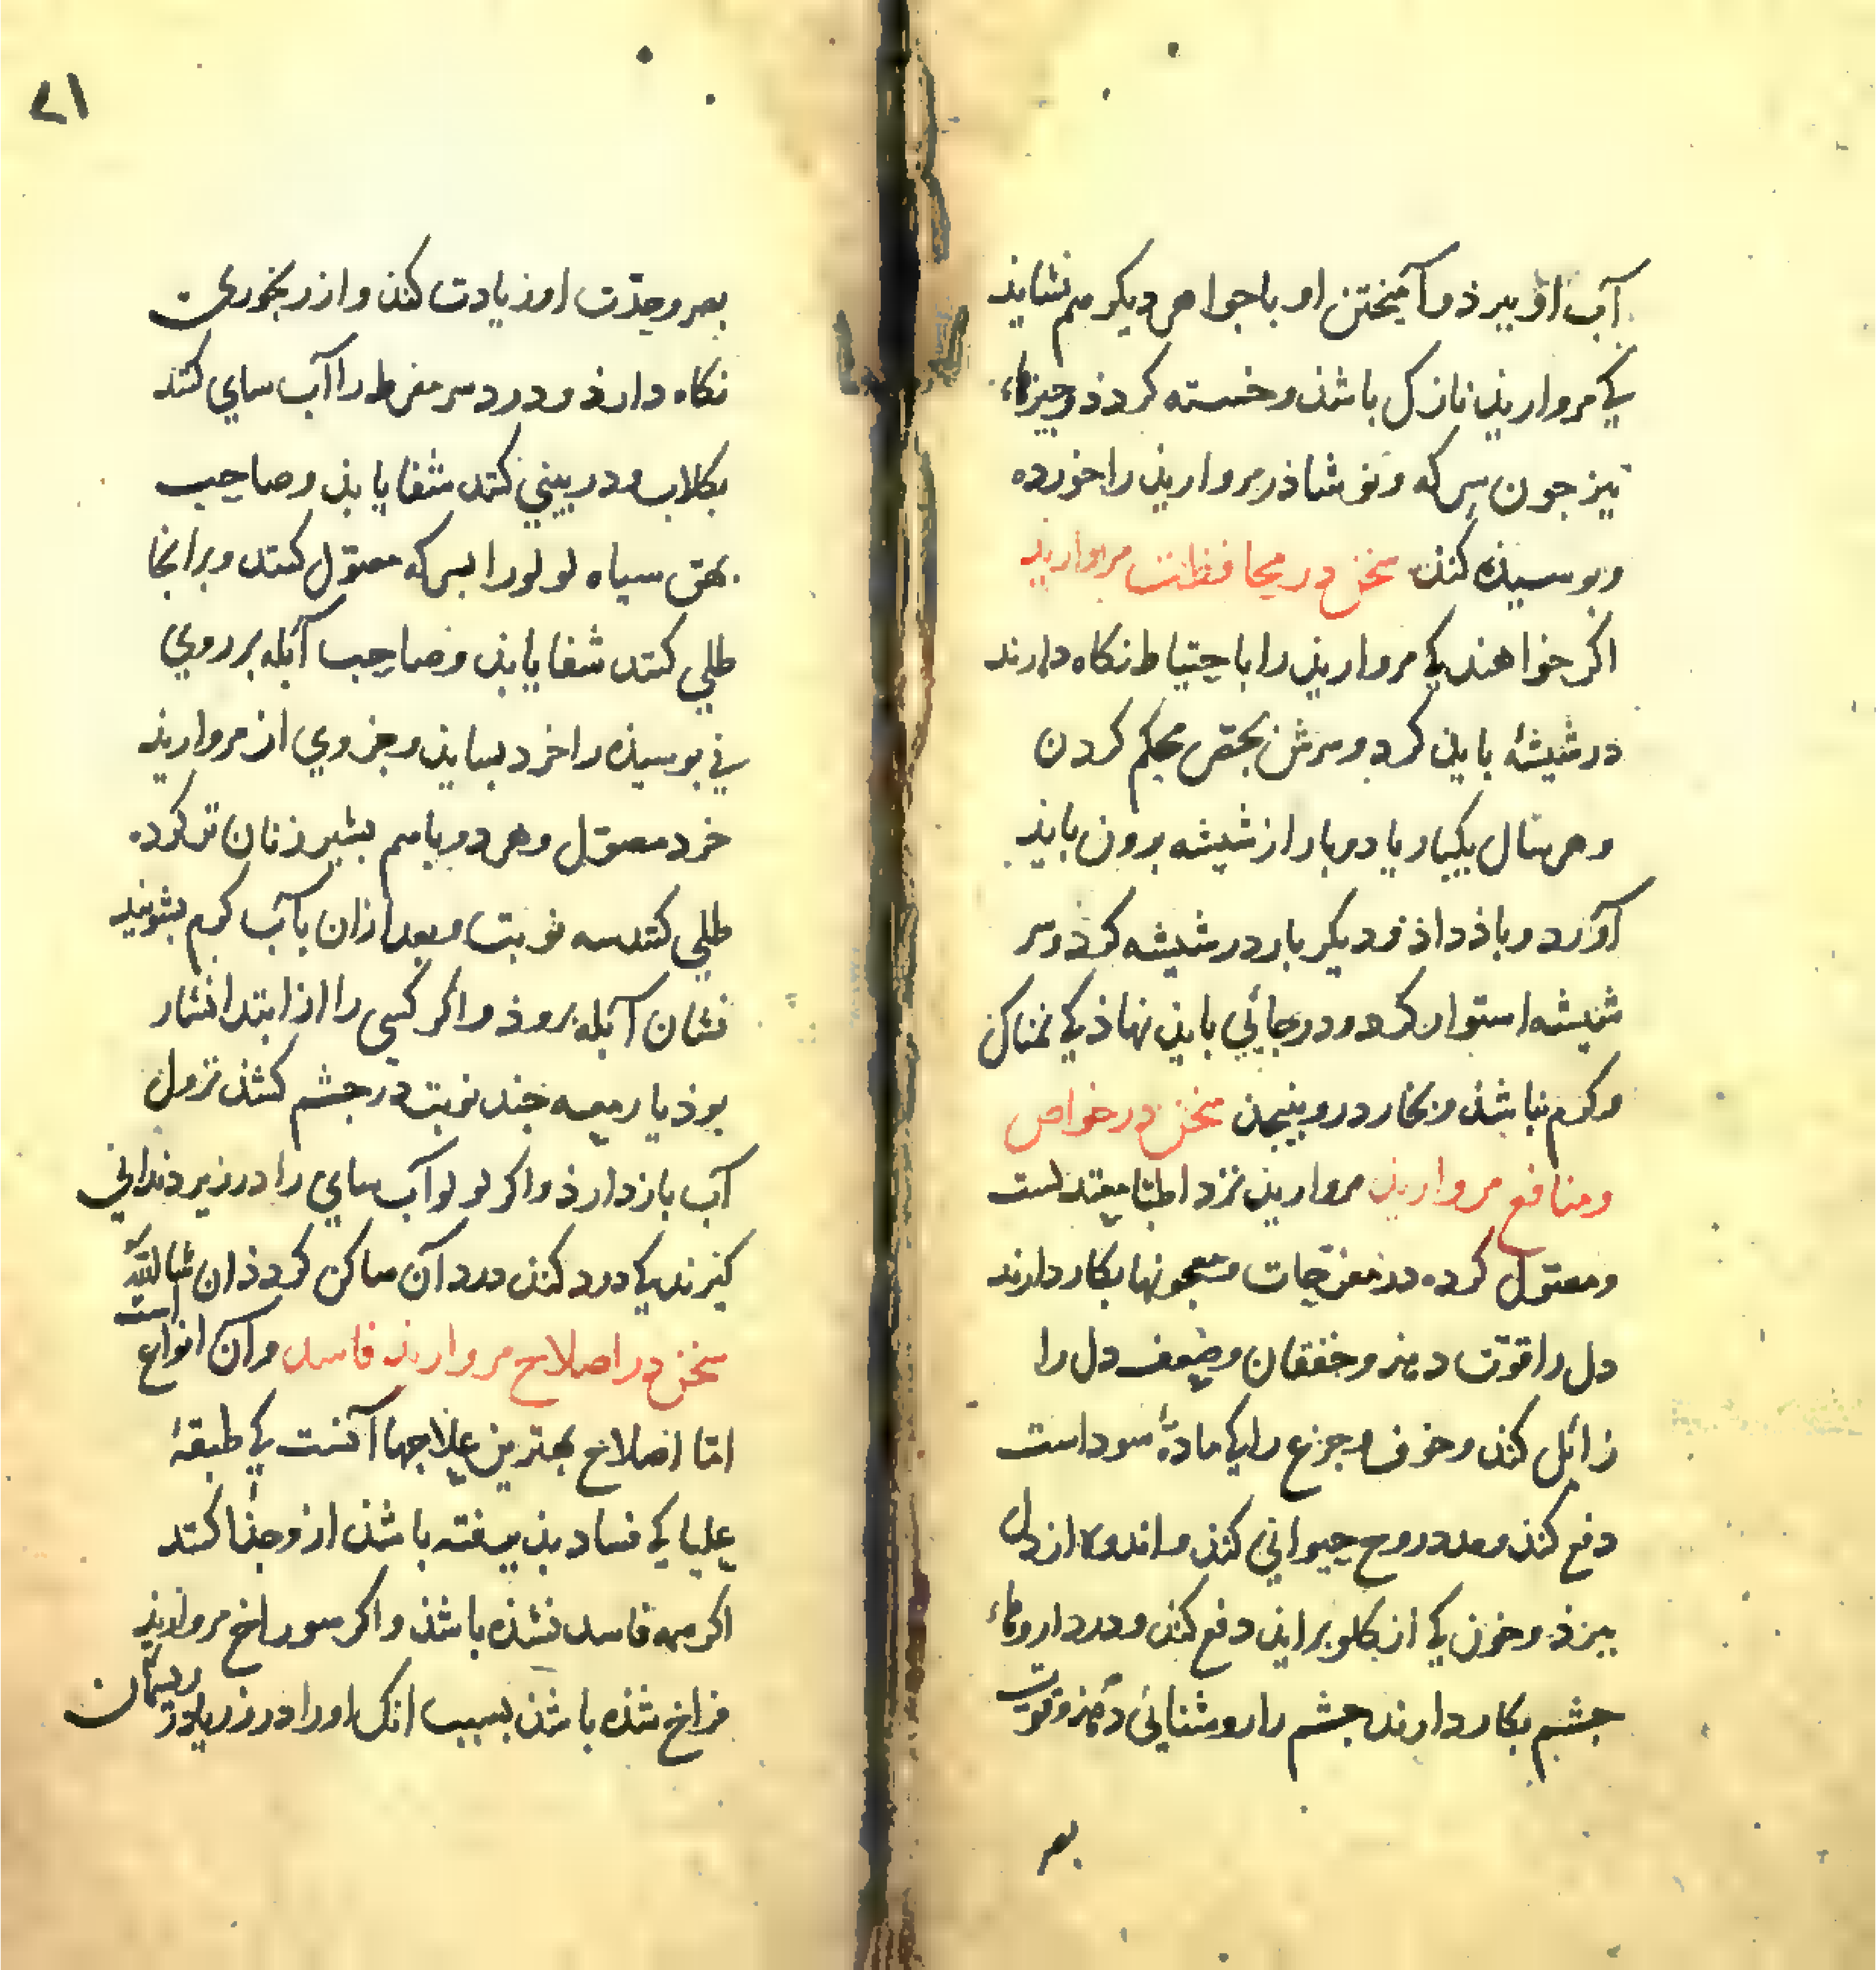 آب او ببرذ و آمیختن او با جواهر دیکر هم نشاید
کی مرواریذ نازک باشذ و خسته کردذ و چیزهاء
تیز جون سرکه و نوشاذر مرواریذ را خورده
و بوسیذه کنذ سخن در محافظت مرواریذ
اکر خواهند کی مرواریذ را باحتیاط نکاه دارند
در شیشهٔ بایذ کرد و سرش بجص محکم کردن
و هر سال یکبار یا دو بار از شیشه برون بایذ
آورد و باذ داذ و دیکر بار در شیشه کرد و سر
شیشه استوار کرد و در جائی بایذ نهاذ کی نمناک
و کرم نباشذ و بخار درو نپیچذ سخن در خواص
و منافع مرواریذ مرواریذ نزد اطبا معتدلست
و محلول کرده در مفرّحات و معجونها بکار دارند
دل را قوّت دهذ و خفقان و ضعف دل را
زائل کنذ و خوف و جزع را کی مادهٔ سوداست
دفع کنذ و مدد روح حیوانی کنذ و اندوه از دل
ببرذ و خون کی از کلو برایذ دفع کنذ و در داروهاء
جشم بکار دارند جشم را روشنائی دهذ و قوّت
بصر
٧١
بصر و حدّت او زیادت کنذ و از رنجوری
نکاه دارذ و درد سر مفرط را آب سای کنند
بکلاب و در بینی کنند شفا یابذ و صاحب
بهق سیاه لولو را بسرکه محلول کنند و برانجا
طلی کنند شفا یابذ و صاحب آبله بر روی
نی بوسیذه را خرد بسایذ و جزوی از مرواریذ
خرد محلول و هر دو باهم بشیر زنان تر کرده
طلی کنند سه نوبت و بعد ازان بآب کرم بشویند
نشان آبله بروذ و اکر کسی را از ابتدا انتشار
بوذ با رمیمه جند نوبت در جشم کشذ نزول
آب بازدارذ و اکر لولو آب سای را در زیر دندانی
کیرند کی درد کنذ درد آن ساکن کردذ ان شا الله
سخن در اصلاح مرواریذ فاسد و آن انواع است
امّا اصلاح بهترین علاجها آنست کی طبقهٔ
علیا کی فساد بذ بیفته باشذ ازو جذا کنند
اکر همه فاسد نشذه باشذ و اکر سوراخ مرواریذ
فراخ شذه باشذ بسبب انک او را در زیادت ریسمان